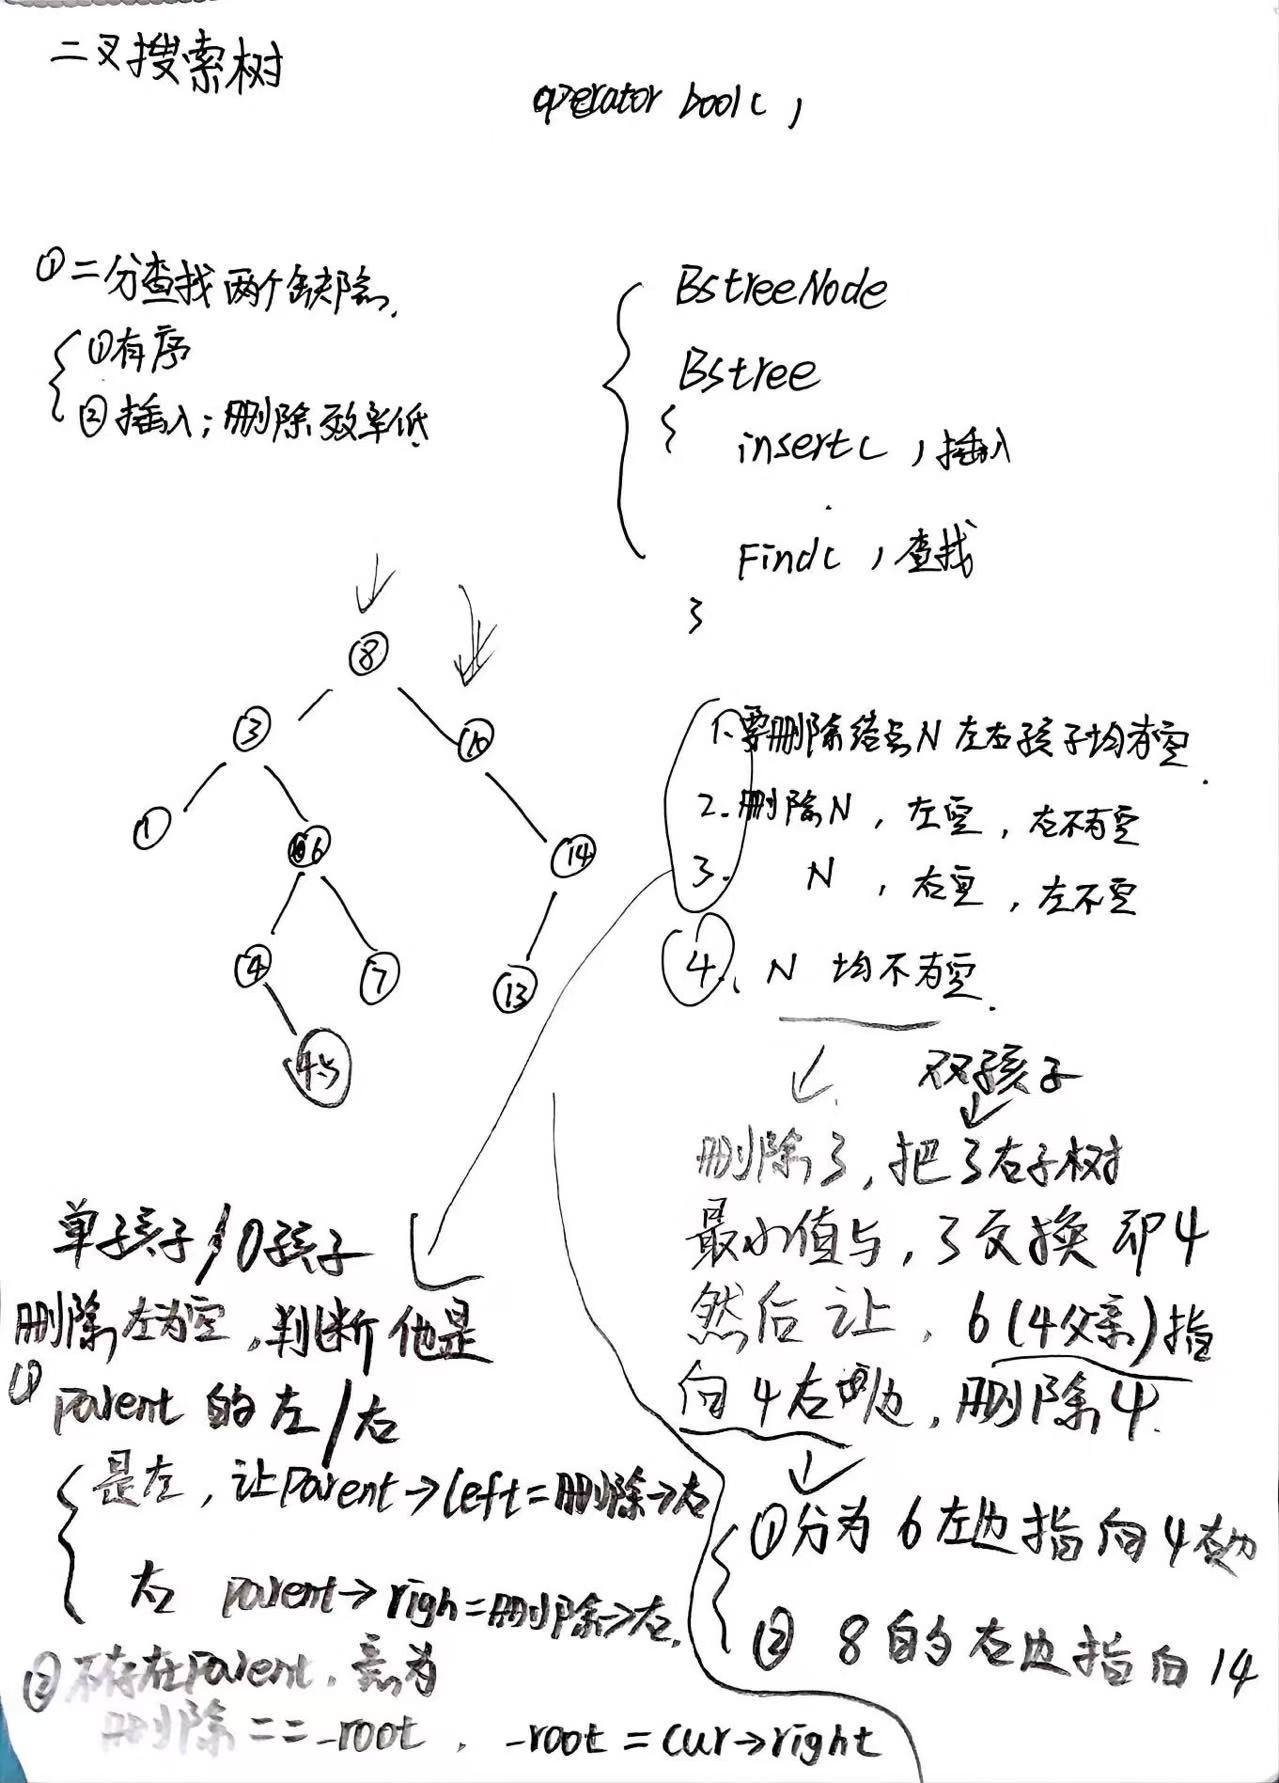 二叉搜索树
operator bool( )
①二分查找两个缺陷.
①有序
②插入;删除效率低.
BstreeNode
Bstree
{
insert( )插入
Find( )查找
}
8
3
10
1
6
14
4
7
13
45
1、要删除结点N左右孩子均为空.
2.删除N,左空,右不为空
3. N,右空,左不空
4、N 均不为空.
双孩子
删除3,把3右子树
最小值与,3交换 即4
然后让,6(4父亲)指
向4右边,删除4.
①分为6左边指向4右边
②8的右边指向14
单孩子/0孩子
删除,左为空,判断他是
① parent的左/右
是左,让parent→left=删除→右
右 parent→righ=删除→右.
②不存在parent.意为
删除==_root,_root=cur→right